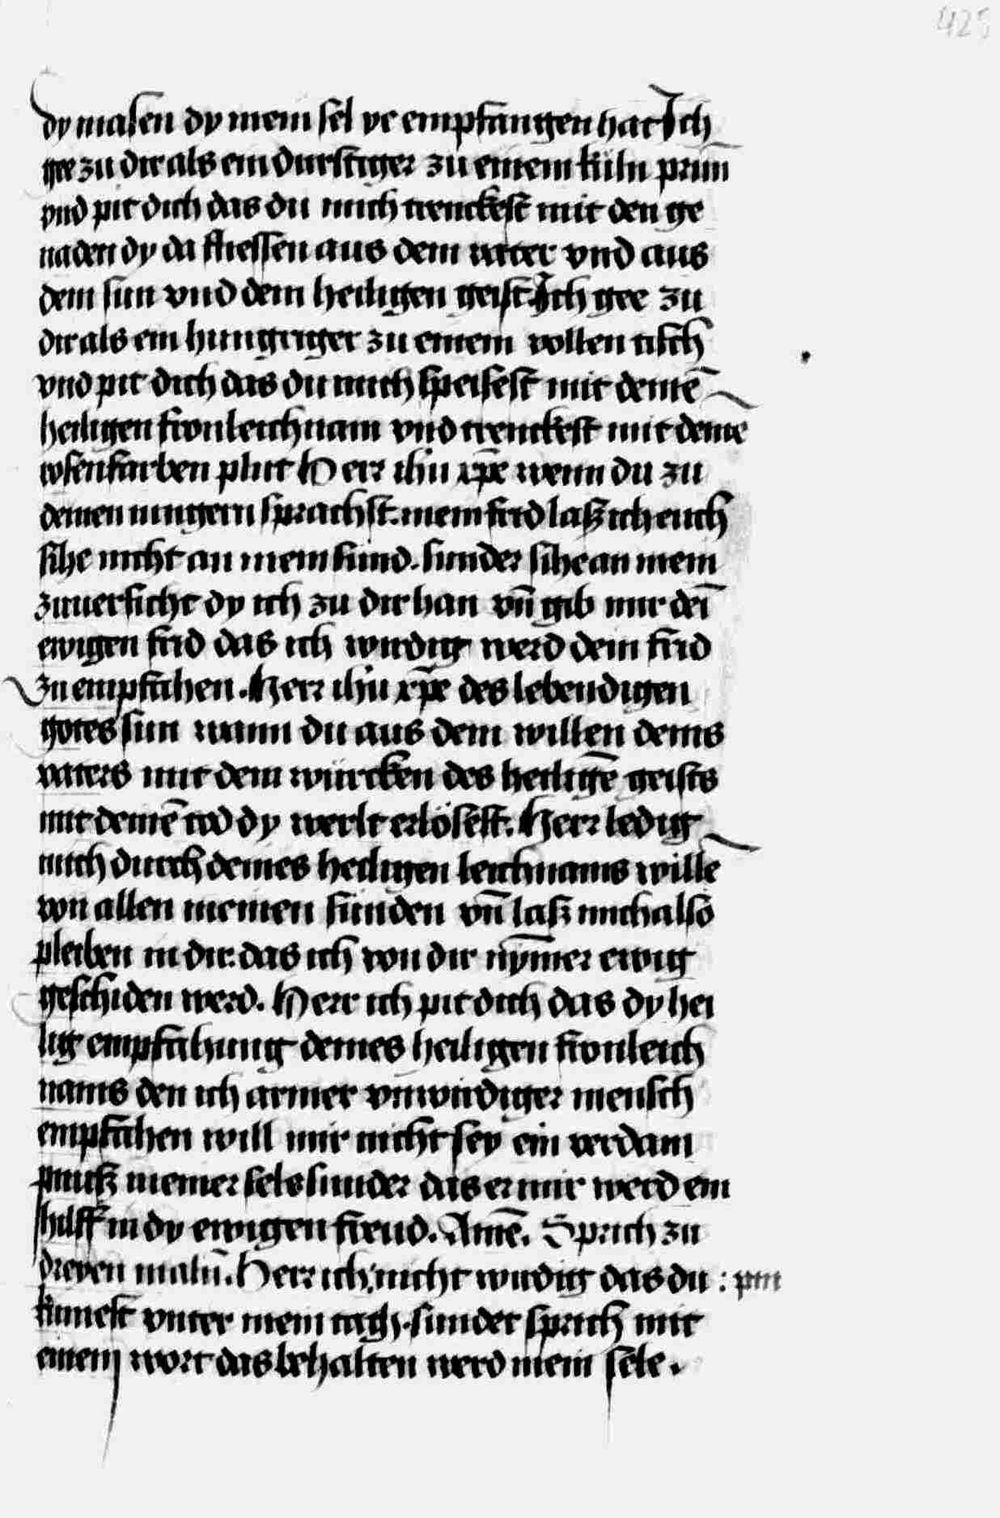 425
dy masen dy mein sel ye empfangen hat Ich
gee zu dir als ein durstiger zu einem küln prun̄
vnd pit dich das du mich trenckest mit den ge
naden dy da fliessen aus dem vater vnd aus
dem sun vnd dem heiligen geist. Ich gee zu
dir als ein hungriger zu einem vollen tisch
vnd pit dich das du mich speisest mit deinē
heiligen fronleichnam vnd trenckest mit deinē
rosenfarben plut Herr ihū xp̄e wenn du zu
deinen iungern sprachst. mein frid laß ich euch
sihe nicht an mein sund. sunder sihe an mein
zuuersicht dy ich zu dir han vn̄ gib mir dein̄
ewigen frid das ich wirdig werd dein frid
zu empfahen. Herr ihū xp̄e des lebendigen
gotes sun wann du aus dem willen deins
vaters mit dem würcken des heiligē geists
mit deinē tod dy werlt erlösest. Herr ledig
mich durch deines heiligen leichnams willē
von allen meinen sunden vn̄ laß mich also
pleiben in dir. das ich von dir nym̄er ewig
geschiden werd. Herr ich pit dich das dy hei
lig empfahung deines heiligen fronleich
nams den ich armer vnwirdiger mensch
empfahen will mir nicht sey ein verdam
pnuß meiner sels sunder das er mir werd ein
hilff in dy ewigen freud. Amē. Sprich zu
dreyen maln̄. Herr ich: nicht wirdig das du : pin
kumest vnter mein tach. sunder sprich mit
einem wort das behalten werd mein sele.